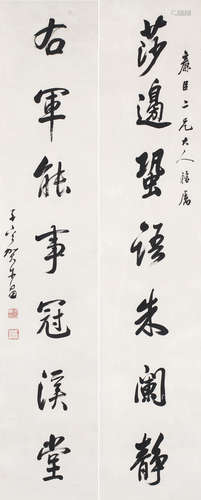 廉臣二兄大人雅屬
莎邊蛩語朱闌靜
右軍能事冠溪堂